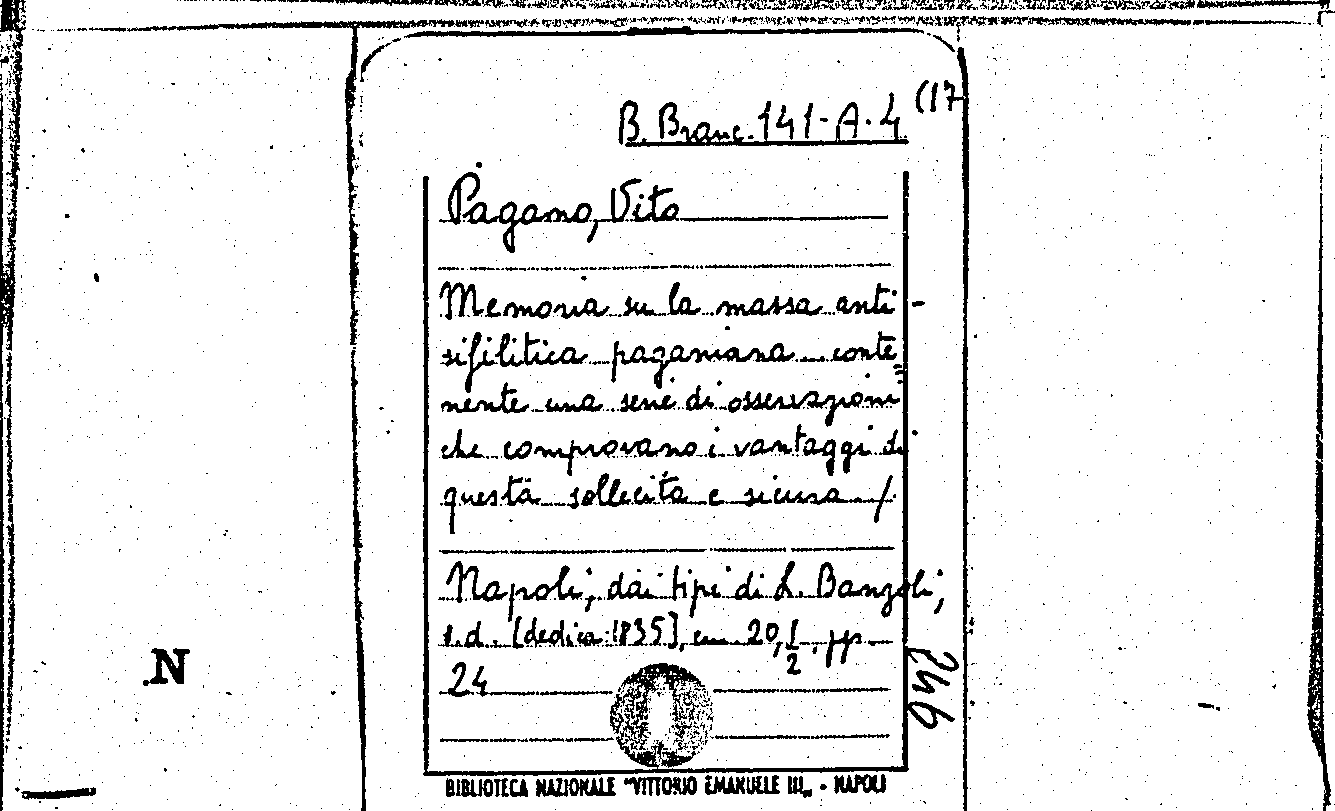 B. Branc. 141-A-4 (17
Pagano, Vito
Memoria su la massa anti-
sifilitica paganiana conte=
nente una serie di osservazioni
che comprovano i vantaggi di
questa sollecita e sicura /
Napoli, dai tipi di L. Banzoli,
s.d. [dedica: 1835], cm. 20,1/2, pp.
24
246
N
BIBLIOTECA NAZIONALE "VITTORIO EMANUELE III„ - NAPOLI